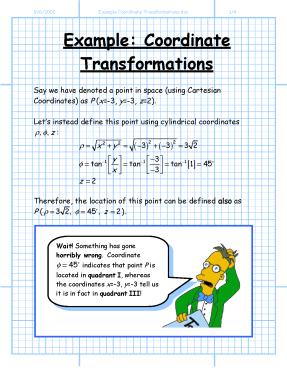 Example Coordinate Transformations.doc
1/4
Example: Coordinate
Transformations
Say we have denoted a point in space (using Cartesian
Coordinates) as P(x=-3, y=-3, z=2).
Let's instead define this point using cylindrical coordinates
ρ, φ, z :
ρ = √(x² + y²) = √((-3)² + (-3)²) = 3√2
φ = tan⁻¹[y/x] = tan⁻¹[-3/-3] = tan⁻¹[1] = 45°
z = 2
Therefore, the location of this point can be defined also as
P(ρ = 3√2, φ = 45°, z = 2).
Wait! Something has gone
horribly wrong. Coordinate
φ = 45° indicates that point P is
located in quadrant I, whereas
the coordinates x=-3, y=-3 tell us
it is in fact in quadrant III!